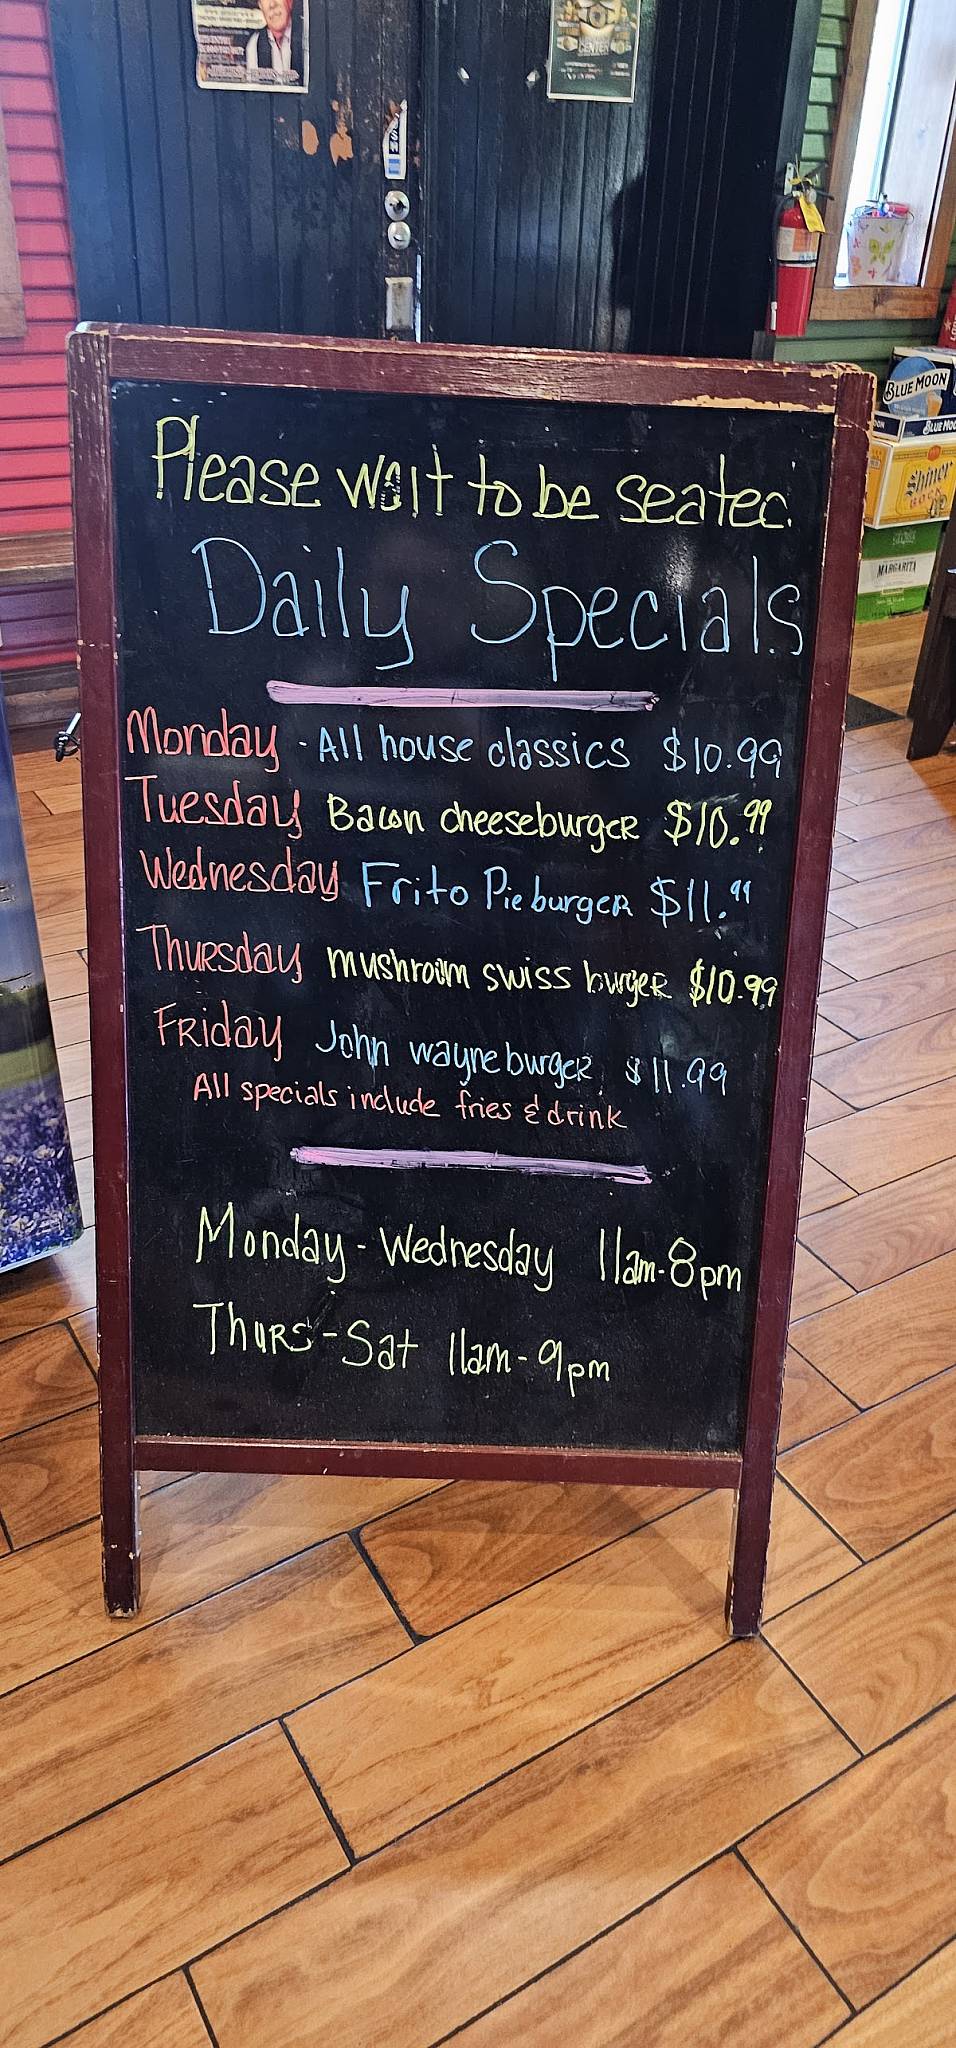 CENTER
BLUE MOON
BLUE MOON
Shiner
BOCK
MARGARITA
Please wait to be seated.
Daily Specials
Monday - All house classics $10.99
Tuesday Bacon cheeseburger $10.99
Wednesday Frito Pie burger $11.99
Thursday mushroom swiss burger $10.99
Friday John wayne burger $11.99
All specials include fries & drink
Monday - Wednesday 11am-8pm
Thurs-Sat 11am-9pm